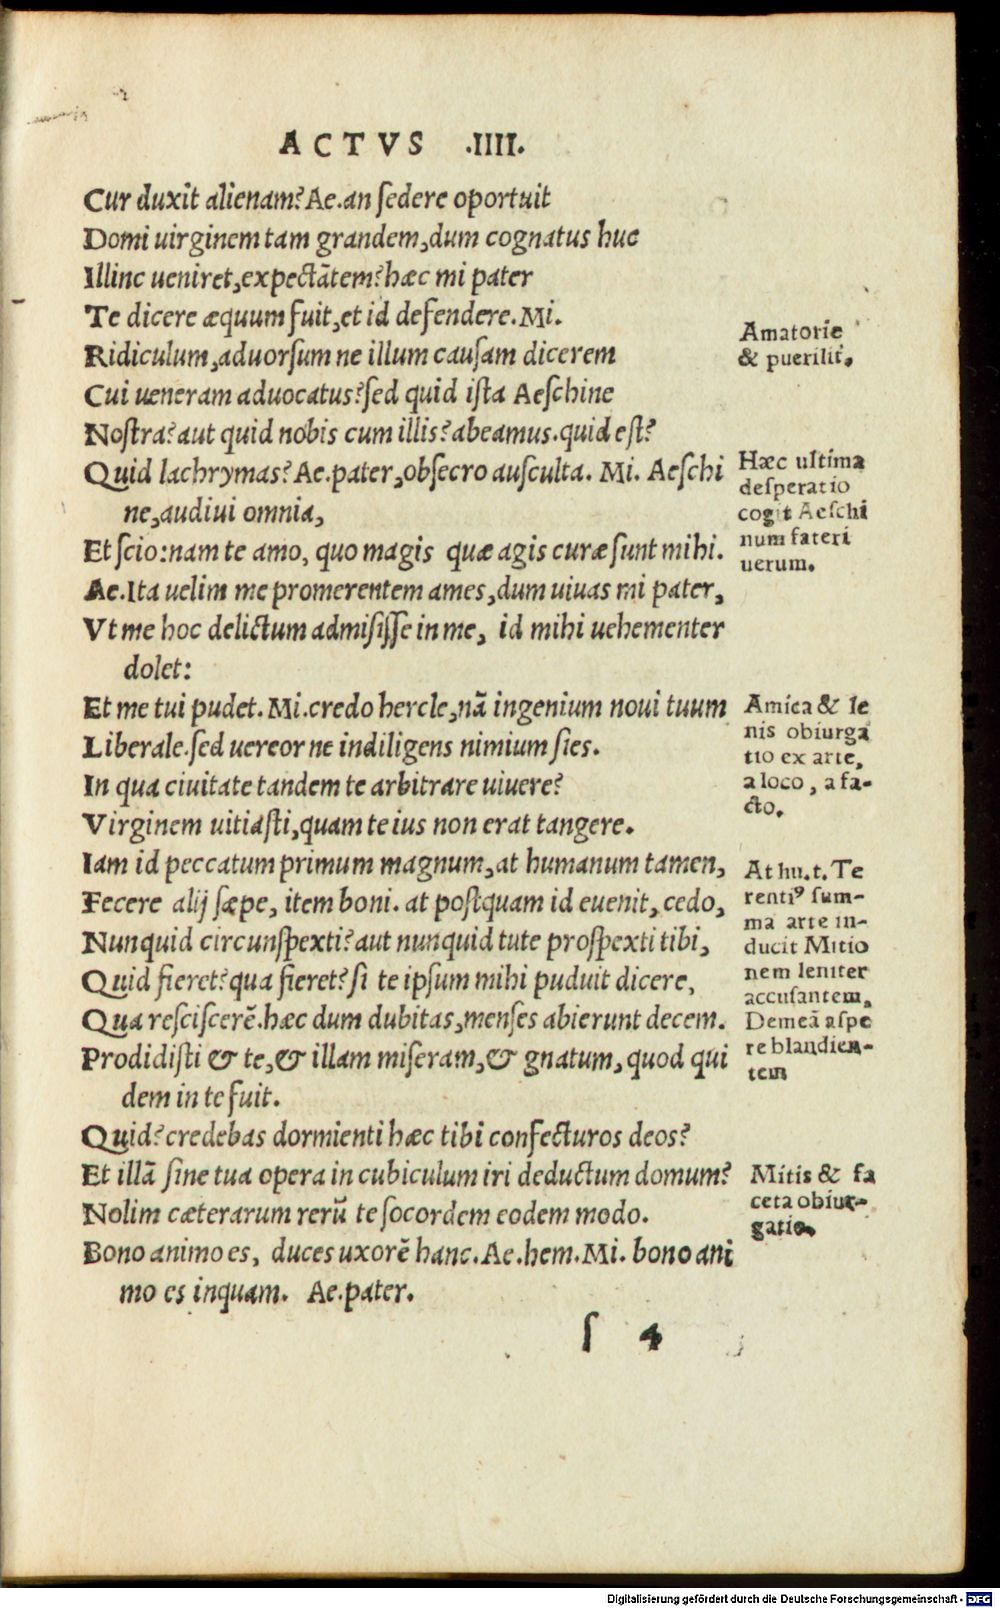 ACTVS .IIII.
Cur duxit alienam? Ae. an ſedere oportuit
Domi uirginem tam grandem, dum cognatus huc
Illinc ueniret, expectãtem? hæc mi pater
Te dicere æquum fuit, et id defendere. Mi.
Ridiculum, aduorſum ne illum cauſam dicerem
Cui ueneram aduocatus? ſed quid iſta Aeſchine
Noſtra? aut quid nobis cum illis? abeamus. quid eſt?
Quid lachrymas? Ae. pater, obſecro auſculta. Mi. Aeſchi
ne, audiui omnia,
Et ſcio: nam te amo, quo magis quæ agis curæ ſunt mihi.
Ae. Ita uelim me promerentem ames, dum uiuas mi pater,
Vt me hoc delictum admiſiſſe in me, id mihi uehementer
dolet:
Et me tui pudet. Mi. credo hercle, nã ingenium noui tuum
Liberale. ſed uereor ne indiligens nimium ſies.
In qua ciuitate tandem te arbitrare uiuere?
Virginem uitiaſti, quam te ius non erat tangere.
Iam id peccatum primum magnum, at humanum tamen,
Fecere alij ſæpe, item boni. at poſtquam id euenit, cedo,
Nunquid circunſpexti? aut nunquid tute proſpexti tibi,
Quid fieret? qua fieret? ſi te ipſum mihi puduit dicere,
Qua reſciſcerẽ. hæc dum dubitas, menſes abierunt decem.
Prodidiſti & te, & illam miſeram, & gnatum, quod qui
dem in te fuit.
Quid? credebas dormienti hæc tibi confecturos deos?
Et illã ſine tua opera in cubiculum iri deductum domum?
Nolim cæterarum rerũ te ſocordem eodem modo.
Bono animo es, duces uxorẽ hanc. Ae. hem. Mi. bono ani
mo es inquam. Ae. pater.
ſ 4
Amatorie
& puerilit.
Hæc ultima
deſperatio
cogit Aeſchi
num fateri
uerum.
Amica & le
nis obiurga
tio ex arte,
a loco, a fa-
cto.
At hu. t. Te
rentiꝰ ſum-
ma arte in-
ducit Mitio
nem leniter
accuſantem,
Demeã aſpe
re blandien-
tem
Mitis & fa
ceta obiur-
gatio.
Digitalisierung gefördert durch die Deutsche Forschungsgemeinschaft - DFG